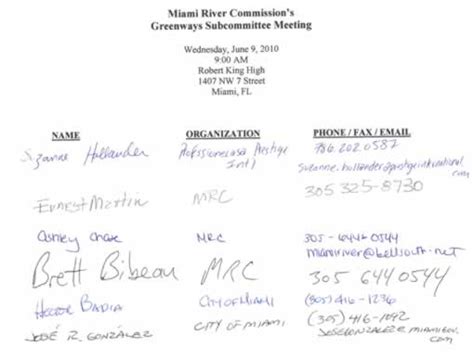 Miami River Commission's
Greenways Subcommittee Meeting
Wednesday, June 9, 2010
9:00 AM
Robert King High
1407 NW 7 Street
Miami, FL
NAME ORGANIZATION PHONE / FAX / EMAIL
Suzanne Hollander Prestige 786.202.0587
Int'l suzanne.hollander@prestigeinternational.
com
Ernest Martin MRC 305 325-8730
Ashley Chase MRC 305-644-0544
miamiriver@bellsouth.net
Brett Bibeau MRC 305 644 0544
Hector Badia City of Miami (305) 416-1236
JOSÉ R. GONZÁLEZ CITY OF MIAMI (305) 416-1092
JOSEGONZALEZ@MIAMIGOV.
com